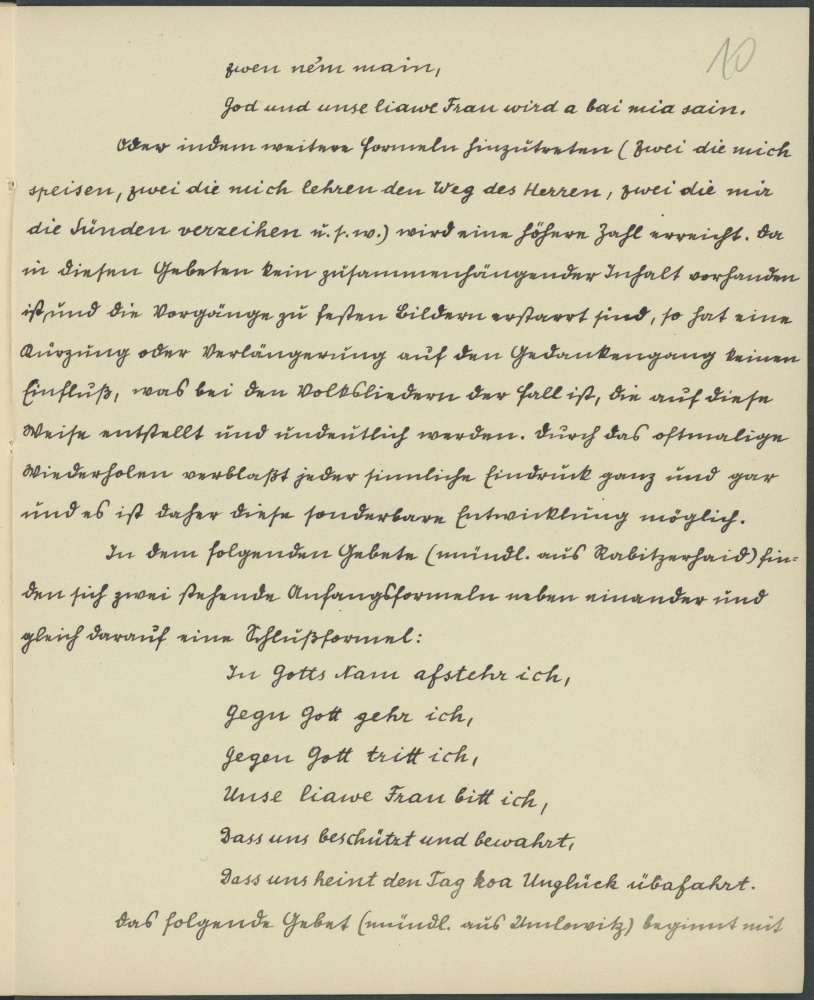 10
zwen ném main,
God und unse liawe Frau wird a bai mia sain.
Oder indem weitere Formeln hinzutreten (zwei die mich
speisen, zwei die mich lehren den Weg des Herren, zwei die mir
die Sünden verzeihen u.s.w.) wird eine höhere Zahl erreicht. Da
in diesen Gebeten kein zusammenhängender Inhalt vorhanden
ist, und die Vorgänge zu festen Bildern erstarrt sind, so hat eine
Kürzung oder Verlängerung auf den Gedankengang keinen
Einfluß, was bei den Volksliedern der Fall ist, die auf diese
Weise entstellt und undeutlich werden. Durch das oftmalige
Wiederholen verblaßt jeder sinnliche Eindruck ganz und gar
und es ist daher diese sonderbare Entwicklung möglich.
In dem folgenden Gebete (mündl. aus Rabitzerhaid) fin=
den sich zwei stehende Anfangsformeln neben einander und
gleich darauf eine Schlußformel:
In Gotts Nam afstehr ich,
Gegn Gott gehr ich,
Gegen Gott tritt ich,
Unse liawe Frau bitt ich,
Dass uns beschützt und bewahrt,
Dass uns heint den Tag koa Unglück übafahrt.
Das folgende Gebet (mündl. aus Umlowitz) beginnt mit